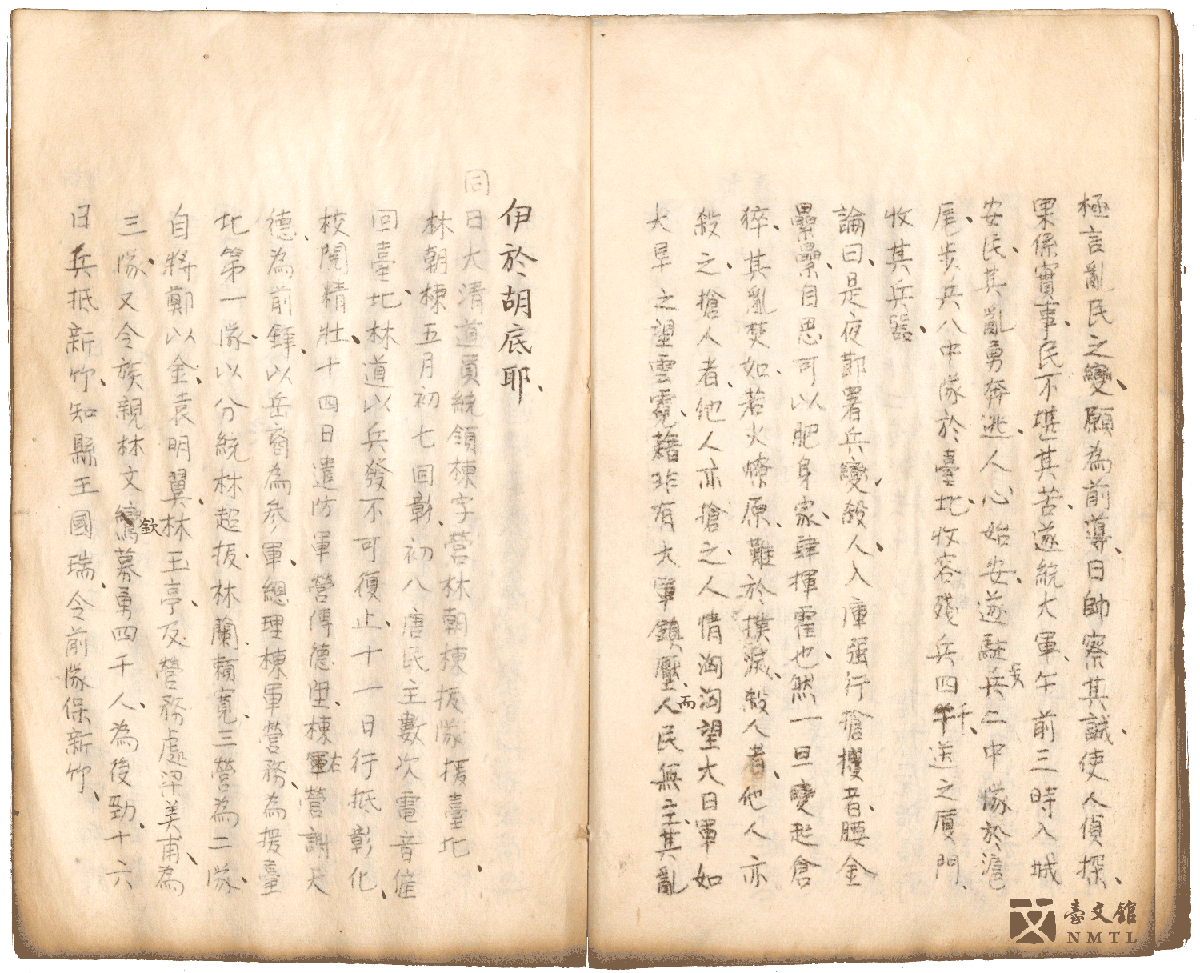 極言亂民之變、願為前導、日帥察其誠、使人偵探、
果係實事、民不堪其苦、遂統大軍、午前三時入城
安民、其亂勇奔逃、人心始安、遂駐兵二中隊於滬
尾、步兵八中隊於臺北、收容殘兵四千、送之廈門、
收其兵器、
論曰、是夜鄞署兵變、殺人入庫強行搶攫、昔腰金
纍纍、自思可以肥身家、肆揮霍也、然一旦變起倉
猝、其亂焚如、若火燎原、難於撲滅、殺人者、他人亦
殺之、搶人者、他人亦搶之、人情洶洶、望大日軍如
大旱之望雲霓、藉非有大軍鎮壓、而人民無主、其亂
伊於胡底耶、
同日大清道員統領棟字營林朝棟拔隊援臺北、
林朝棟五月初七回彰、初八唐民主數次電音催
回臺北、林道以兵發不可復止、十一日行抵彰化、
校閱精壯、十四日遣防軍營傅德生、棟右營謝天
德為前鋒、以岳裔為參軍、總理棟軍營務、為援臺
北第一隊、以分統林超拔、林蘭、賴寬、三營為二隊、
自將鄭以金、袁明翼、林玉亭、及營務處梁美甫、為
三隊、又令族親林文欽募勇四千人、為後勁、十六
日兵抵新竹、知縣王國瑞、令前隊保新竹、
臺文館
NMTL